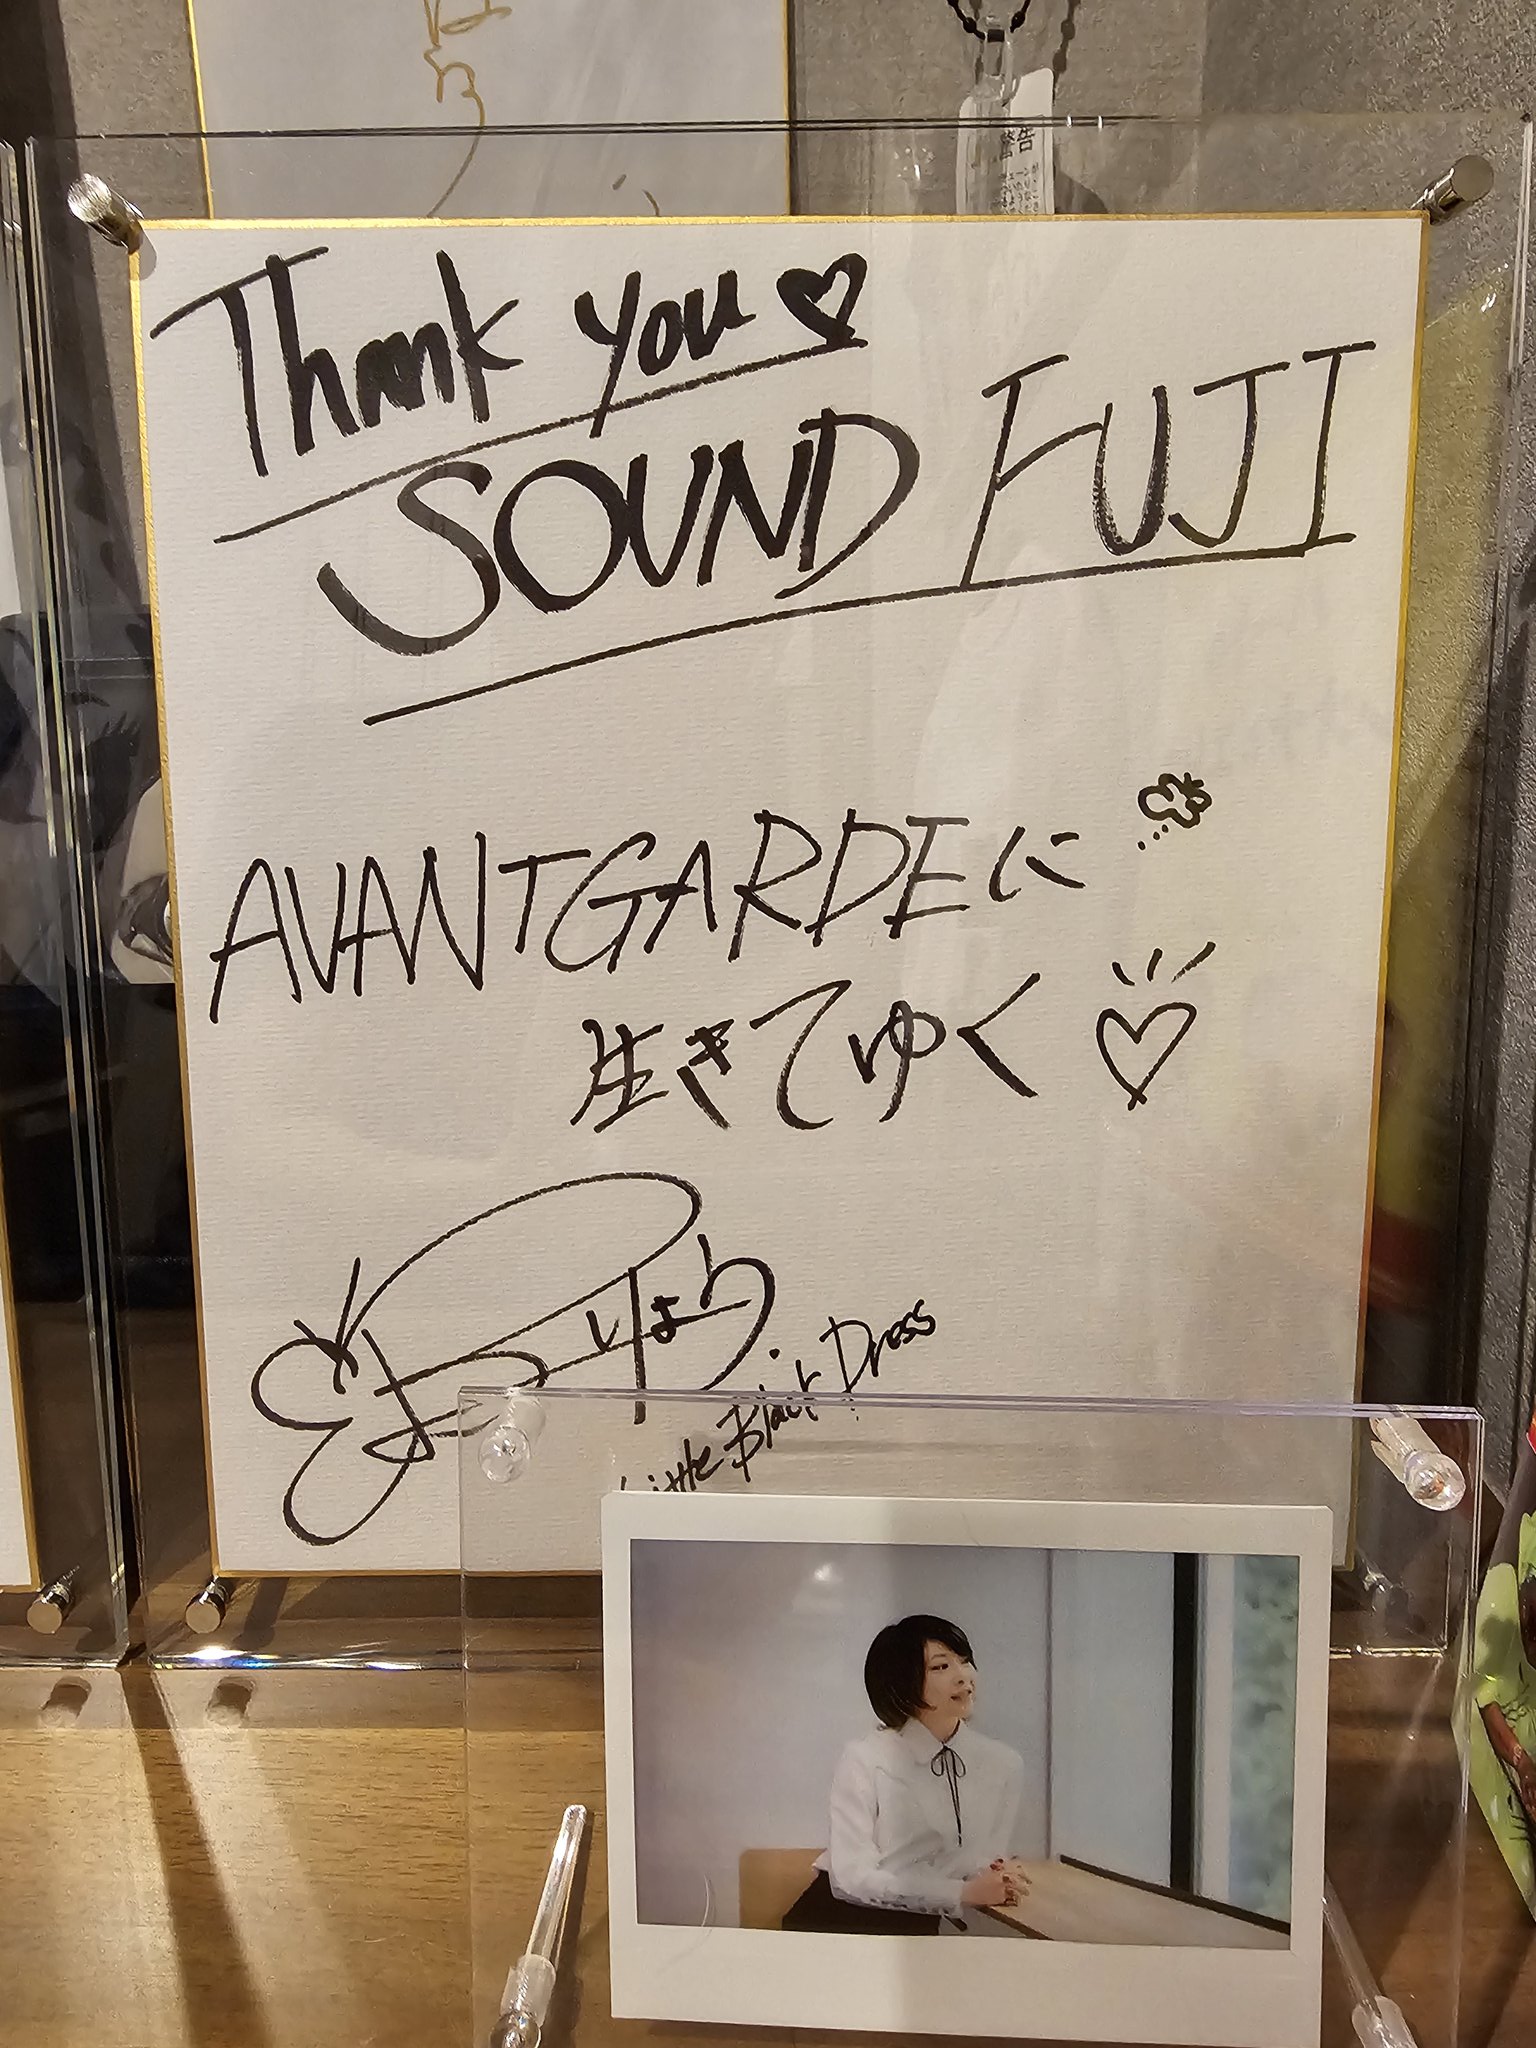 警告
Thank you
SOUND FUJI
AVANTGARDEに
生きてゆく
Little Black Dress